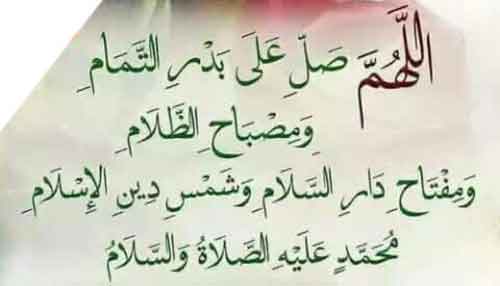 اللَّهُمَّ صَلِّ عَلَى بَدْرِ التَّمَامِ
وَمِصْبَاحِ الظَّلَامِ
وَمِفْتَاحِ دَارِ السَّلَامِ وَشَمْسِ دِينِ الإِسْلَامِ
مُحَمَّدٍ عَلَيْهِ الصَّلَاةُ وَالسَّلَامُ